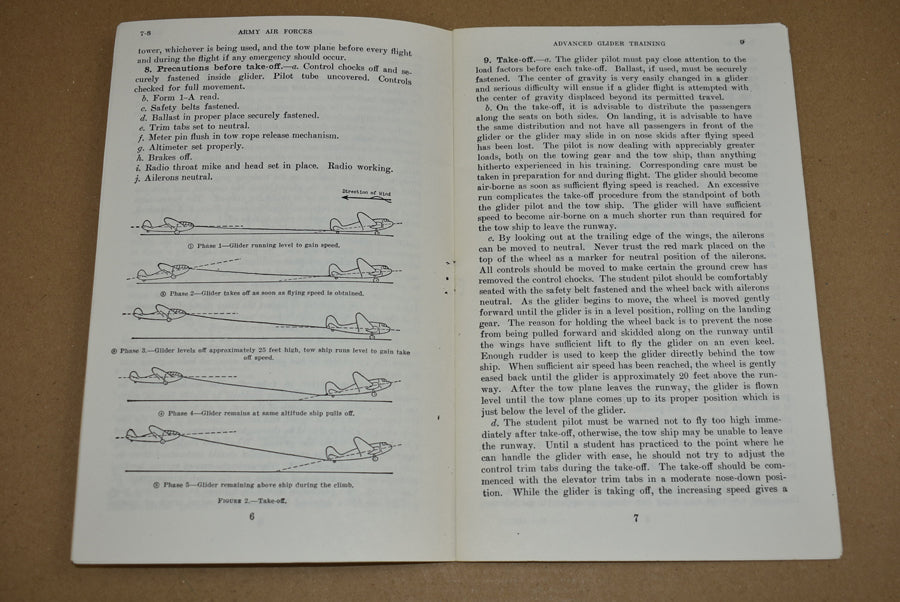 7-8 ARMY AIR FORCES
tower, whichever is being used, and the tow plane before every flight
and during the flight if any emergency should occur.
8. Precautions before take-off.—a. Control chocks off and se-
curely fastened inside glider. Pilot tube uncovered. Controls
checked for full movement.
b. Form 1-A read.
c. Safety belts fastened.
d. Ballast in proper place securely fastened.
e. Trim tabs set to neutral.
f. Meter pin flush in tow rope release mechanism.
g. Altimeter set properly.
h. Brakes off.
i. Radio throat mike and head set in place. Radio working.
j. Ailerons neutral.
Direction of Wind
① Phase 1—Glider running level to gain speed.
② Phase 2—Glider takes off as soon as flying speed is obtained.
③ Phase 3.—Glider levels off approximately 25 feet high, tow ship runs level to gain take
off speed.
④ Phase 4—Glider remains at same altitude ship pulls off.
⑤ Phase 5—Glider remaining above ship during the climb.
FIGURE 2.—Take-off.
6
ADVANCED GLIDER TRAINING 9
9. Take-off.—a. The glider pilot must pay close attention to the
load factors before each take-off. Ballast, if used, must be securely
fastened. The center of gravity is very easily changed in a glider
and serious difficulty will ensue if a glider flight is attempted with
the center of gravity displaced beyond its permitted travel.
b. On the take-off, it is advisable to distribute the passengers
along the seats on both sides. On landing, it is advisable to have
the same distribution and not have all passengers in front of the
glider or the glider may slide in on nose skids after flying speed
has been lost. The pilot is now dealing with appreciably greater
loads, both on the towing gear and the tow ship, than anything
hitherto experienced in his training. Corresponding care must be
taken in preparation for and during flight. The glider should become
air-borne as soon as sufficient flying speed is reached. An excessive
run complicates the take-off procedure from the standpoint of both
the glider pilot and the tow ship. The glider will have sufficient
speed to become air-borne on a much shorter run than required for
the tow ship to leave the runway.
c. By looking out at the trailing edge of the wings, the ailerons
can be moved to neutral. Never trust the red mark placed on the
top of the wheel as a marker for neutral position of the ailerons.
All controls should be moved to make certain the ground crew has
removed the control chocks. The student pilot should be comfortably
seated with the safety belt fastened and the wheel back with ailerons
neutral. As the glider begins to move, the wheel is moved gently
forward until the glider is in a level position, rolling on the landing
gear. The reason for holding the wheel back is to prevent the nose
from being pulled forward and skidded along on the runway until
the wings have sufficient lift to fly the glider on an even keel.
Enough rudder is used to keep the glider directly behind the tow
ship. When sufficient air speed has been reached, the wheel is gently
eased back until the glider is approximately 20 feet above the run-
way. After the tow plane leaves the runway, the glider is flown
level until the tow plane comes up to its proper position which is
just below the level of the glider.
d. The student pilot must be warned not to fly too high imme-
diately after take-off, otherwise, the tow ship may be unable to leave
the runway. Until a student has practiced to the point where he
can handle the glider with ease, he should not try to adjust the
control trim tabs during the take-off. The take-off should be com-
menced with the elevator trim tabs in a moderate nose-down posi-
tion. While the glider is taking off, the increasing speed gives a
7